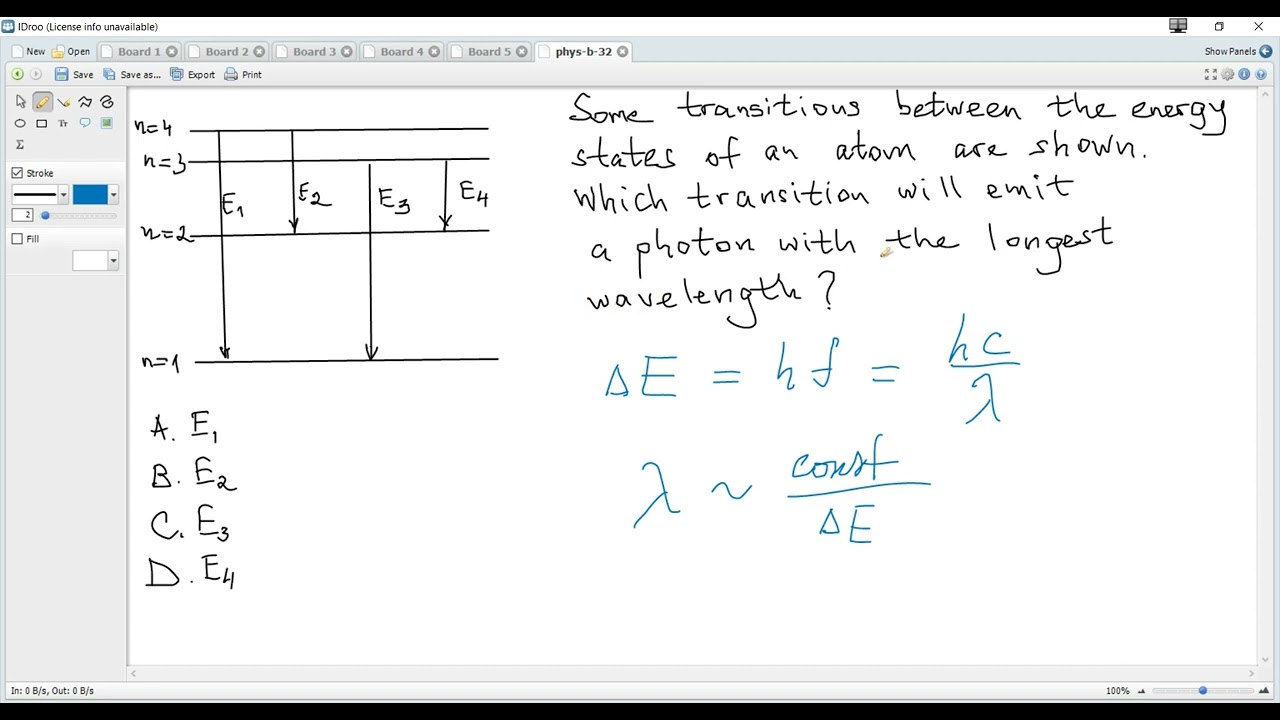 IDroo (License info unavailable)
New Open Board 1 Board 2 Board 3 Board 4 Board 5 phys-b-32 Show Panels
Save Save as... Export Print
Tr
Σ
Stroke
2
Fill
n=4
n=3
n=2
n=1
E1 E2 E3 E4
Some transitious between the energy
states of an atom are shown.
Which transition will emit
a photon with the longest
wavelength?
ΔE = hf = hc/λ
λ ~ const/ΔE
A. E1
B. E2
C. E3
D. E4
In: 0 B/s, Out: 0 B/s 100%